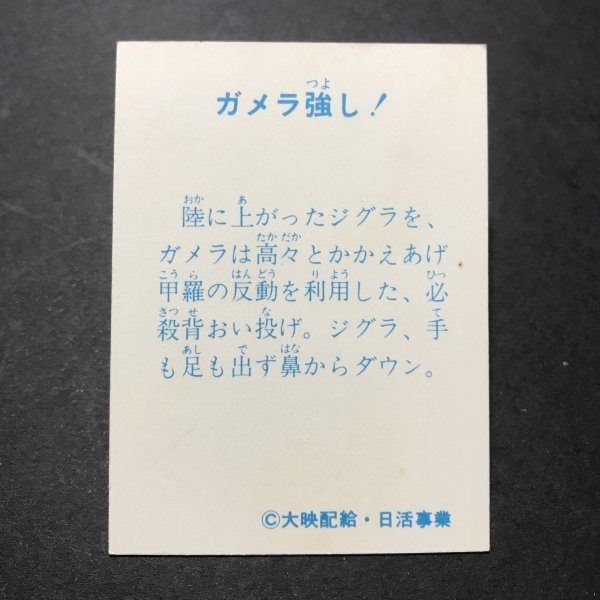 ガメラ強し！
陸に上がったジグラを、
ガメラは高々とかかえあげ
甲羅の反動を利用した、必
殺背おい投げ。ジグラ、手
も足も出ず鼻からダウン。
©大映配給・日活事業